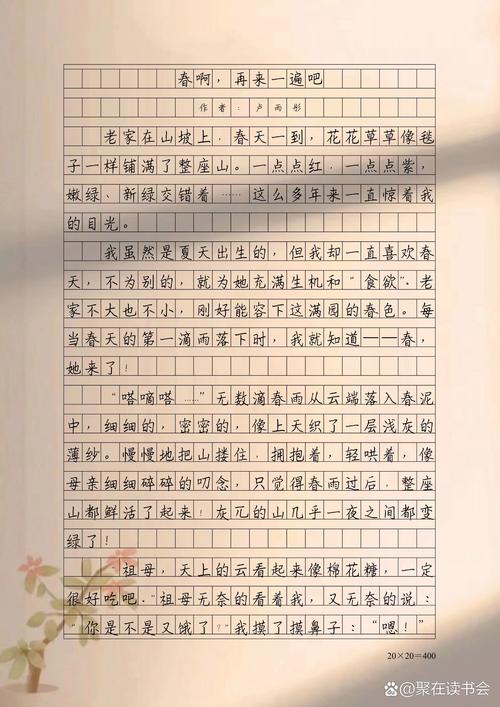 春啊，再来一遍吧
作者：卢雨彤
老家在山坡上，春天一到，花花草草像毯
子一样铺满了整座山。一点点红，一点点紫，
嫩绿、新绿交错着……这么多年来一直惊着我
的目光。
我虽然是夏天出生的，但我却一直喜欢春
天，不为别的，就为她充满生机和“食欲”.老
家不大也不小，刚好能容下这满园的春色。每
当春天的第一滴雨落下时，我就知道——春，
她来了！
“嗒嘀嗒……”无数滴春雨从云端落入春泥
中，细细的，密密的，像上天织了一层浅灰的
薄纱。慢慢地把山搂住，拥抱着，轻哄着，像
母亲细细碎碎的叨念，只觉得春雨过后，整座
山都鲜活了起来！灰兀的山几乎一夜之间都变
绿了！
“祖母，天上的云看起来像棉花糖，一定
很好吃吧.”祖母无奈的看着我，又无奈的说：
“你是不是又饿了？”我摸了摸鼻子：“嗯！
20×20=400
聚在读书会